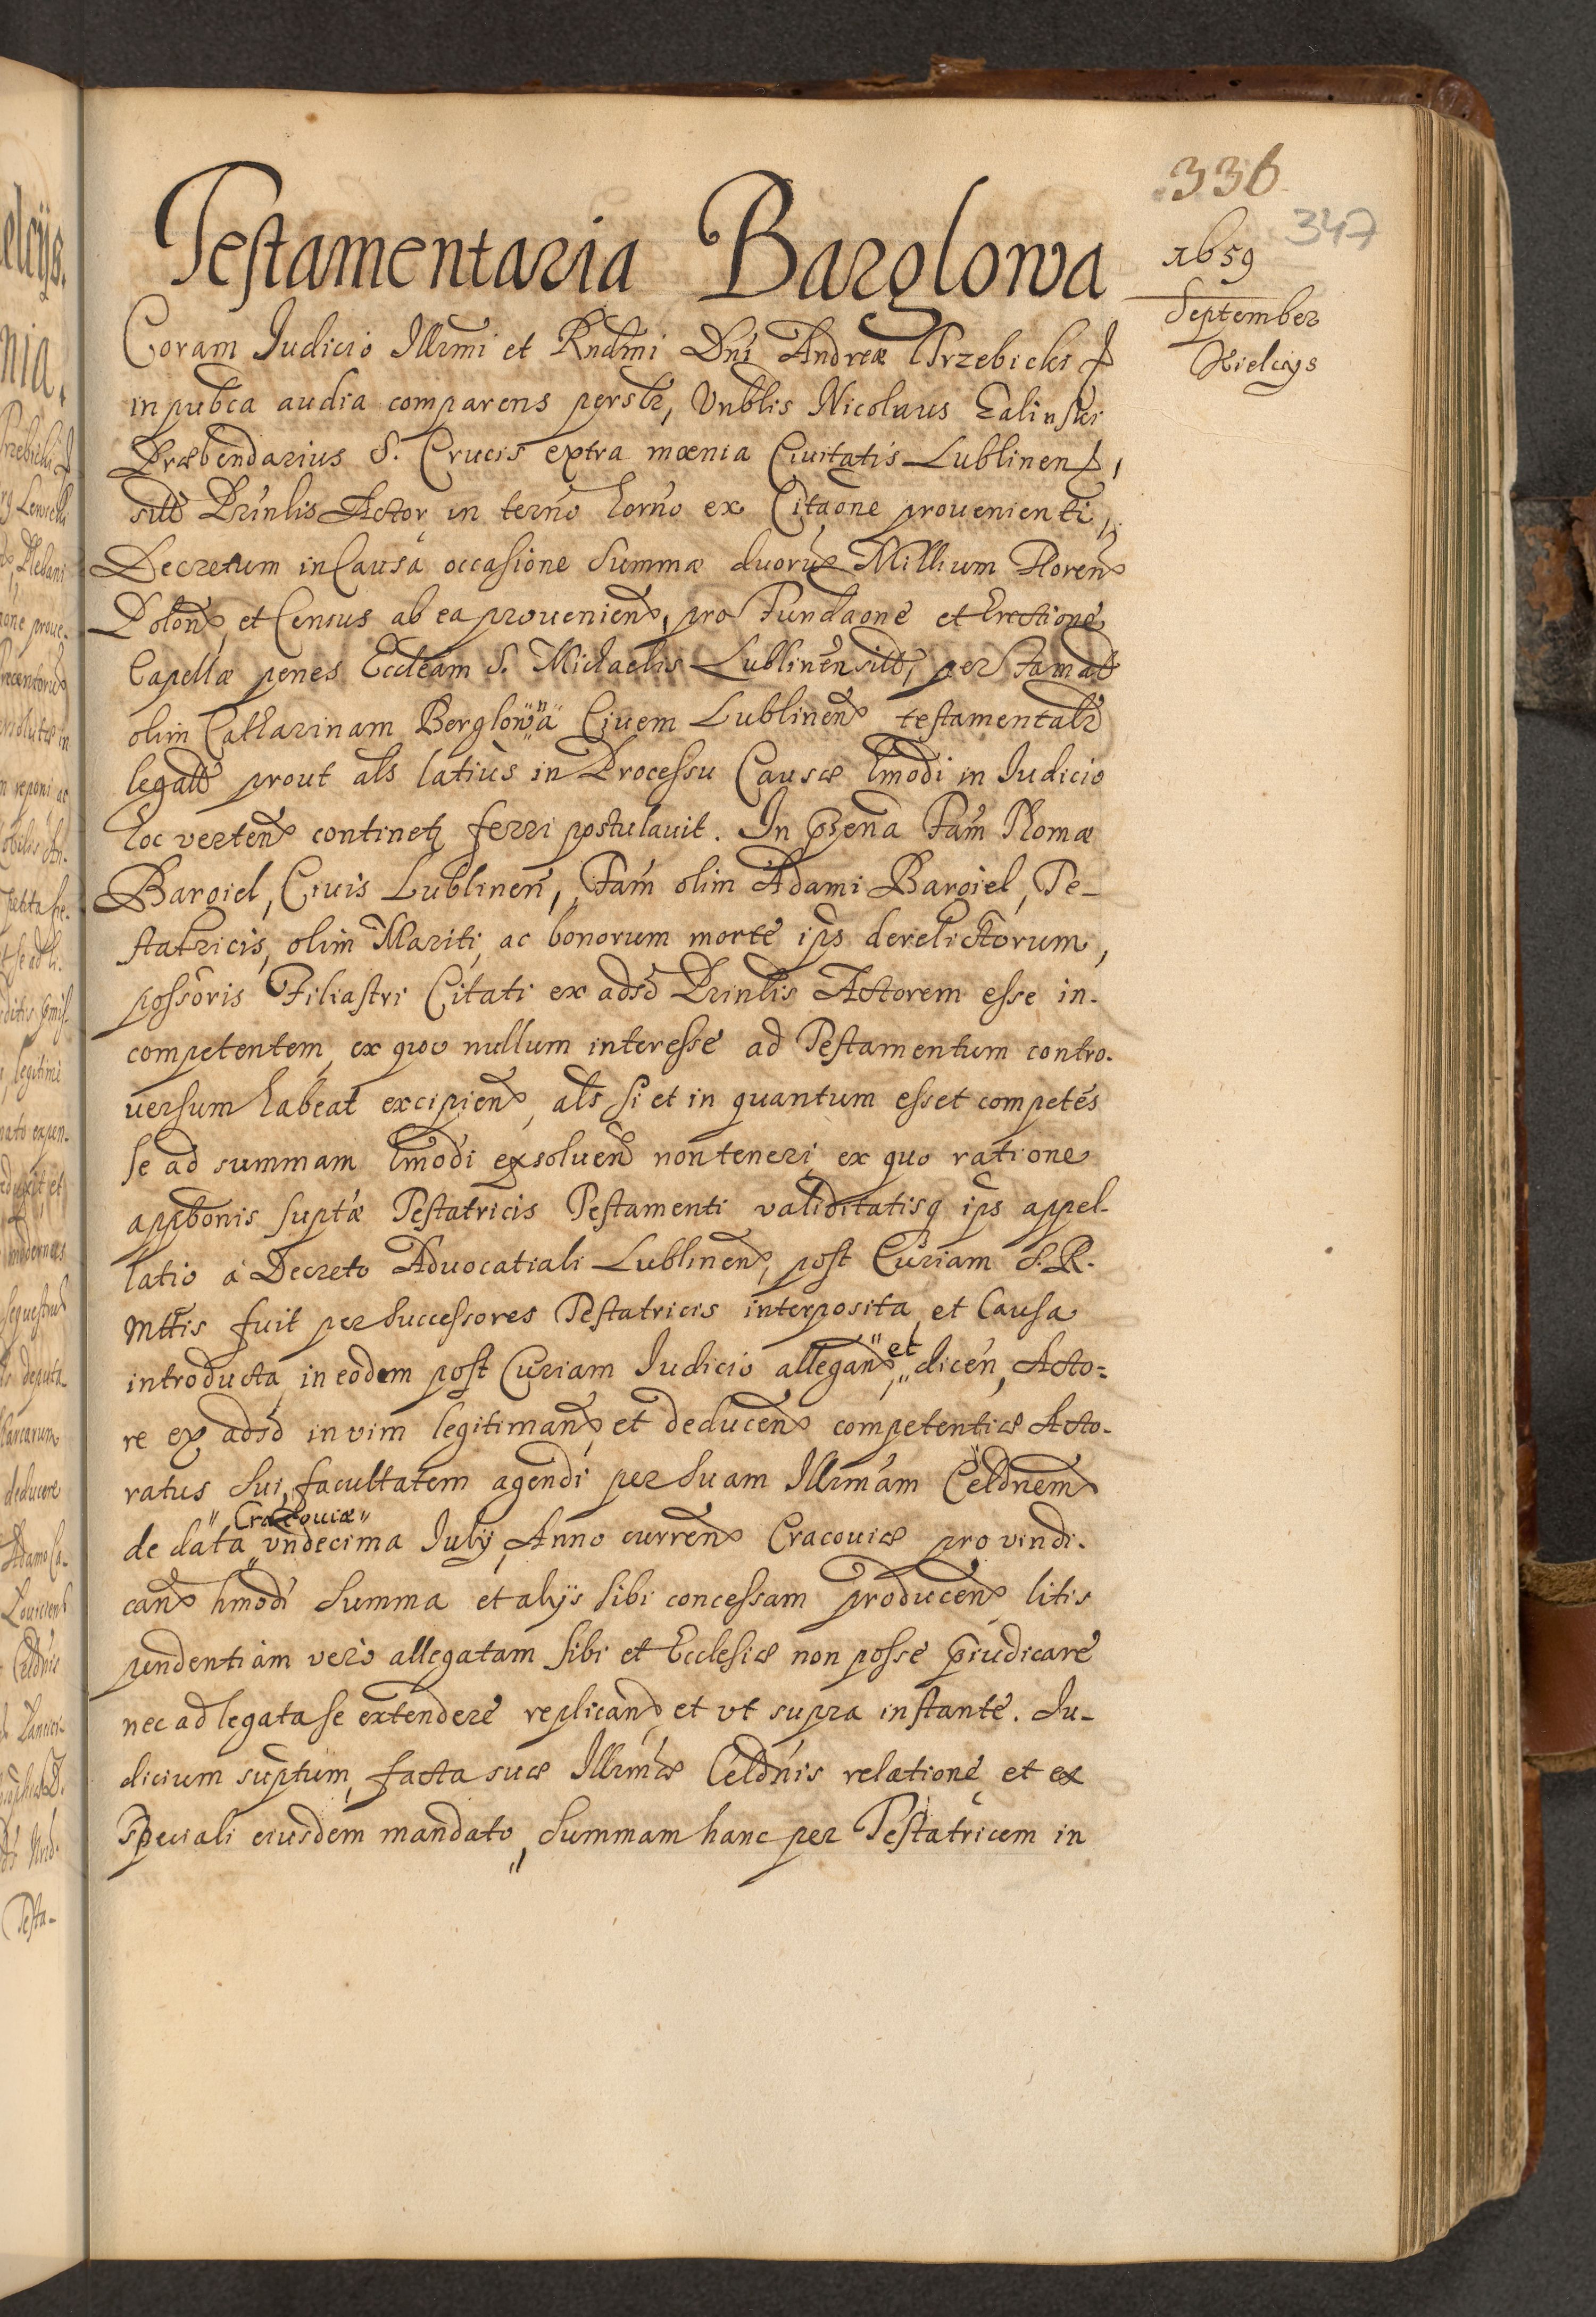 336
347
1659
September
Kielcijs
Testamentaria Barglowa
Coram Judicio Illrmi et Rndmi Dni Andreæ Trzebicki
in pubca audia comparens perslr, Vnblis Nicolaus Zalinski
Præbendarius S. Crucis extra mœnia Ciuitatis Lublinen,
sitt Prinlis Actor in termo horno ex Citaone prouenienti,
Decretum in Causa occasione Summæ duorum Millium Floren
Polon, et Census ab ea prouenien, pro Fundaone et Erectione
Capellæ penes Eccleam S. Michaelis Lublinen sitt, per Famat
olim Catharinam Berglowna Ciuem Lublinen testamentalr
legatt prout als latius in Processu Causæ hmodi in Judicio
hoc verten continetz ferri postulauit. In pzena Fam Thomæ
Bargiel, Ciuis Lublinen, Fam olim Adami Bargiel, Te-
statricis, olim Mariti, ac bonorum morte ips derelictorum,
possoris Filiastri Citati ex adsd Prinlis Actorem esse in-
competentem, ex quo nullum interesse ad Testamentum contro-
uersum habeat excipien, als si et in quantum esset competes
se ad summam hmodi exsoluen non teneri, ex quo ratione
appbonis suptæ Testatricis Testamenti validitatisq ips appel-
latio a Decreto Aduocatiali Lublinen, post Curiam S. R.
Mttis fuit per Successores Testatricis interposita, et Causa
introducta, in eodem post Curiam Judicio allegan, et dicen, Acto-
re ex adsd in vim legitiman, et deducen competentiæ Acto-
ratus Sui, facultatem agendi per Suam Illrmam Celdnem
Cracouiæ
de data vndecima Julij, Anno curren Cracouiæ pro vindi-
can hmodi Summa et alijs sibi concessam producen litis
pendentiam vero allegatam sibi et Ecclesiæ non posse piudicare
nec ad legata se extendere replican, et vt supra instante. Ju-
dicium suptum, facta suæ Illrmæ Celdnis relatione et ex
speciali eiusdem mandato, Summam hanc per Testatricem in